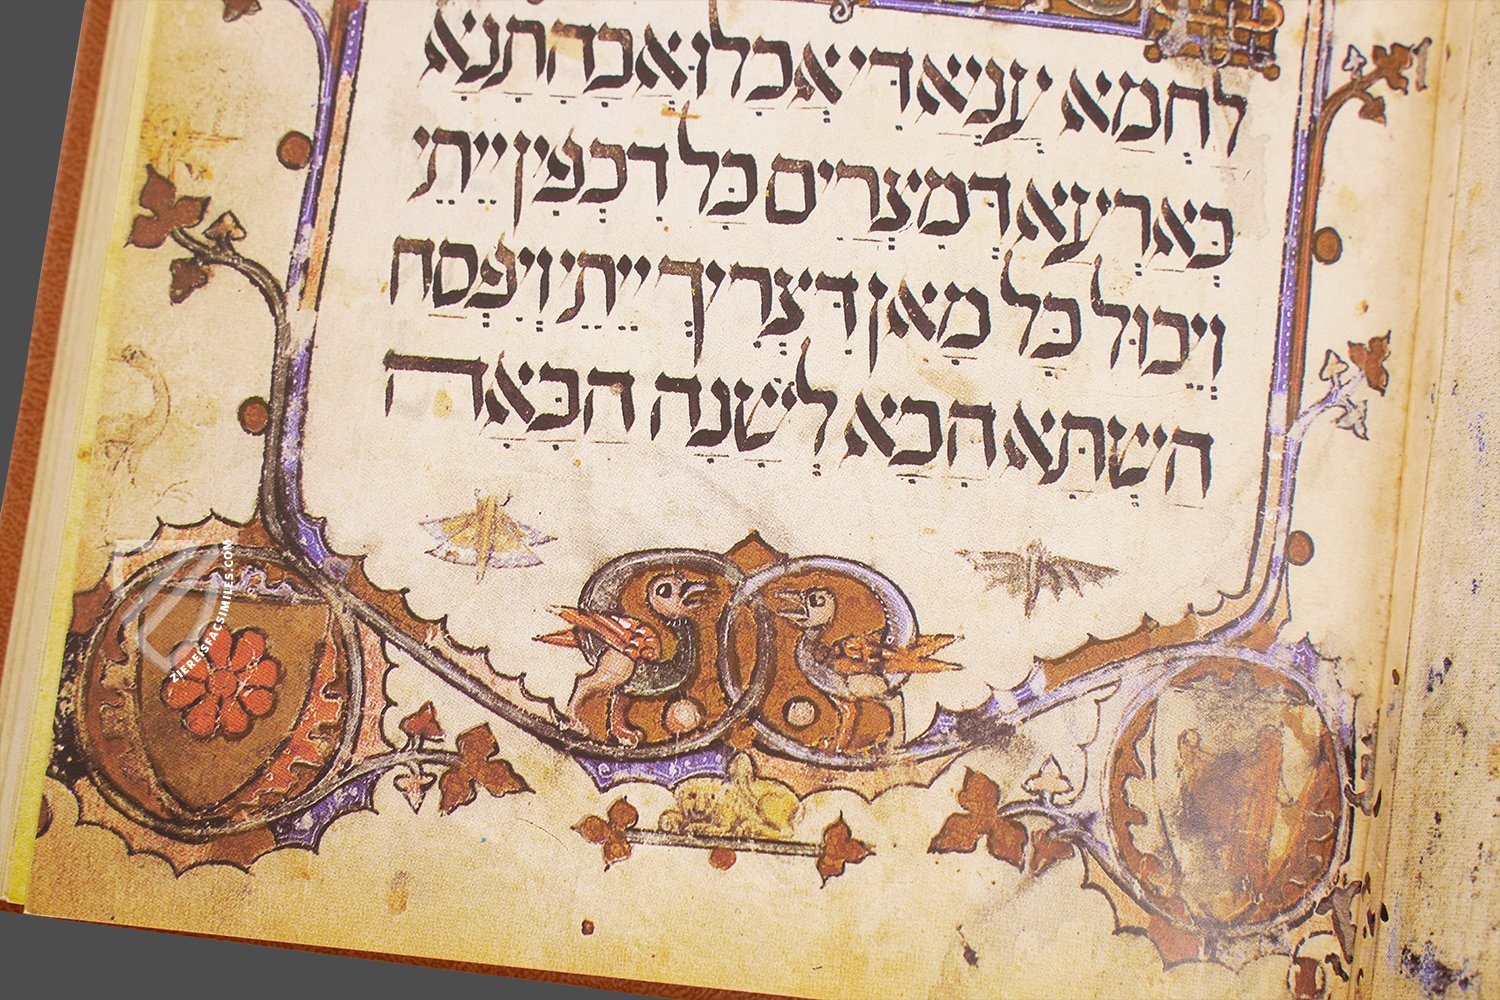 לחמא עניא די אכלו אבהתנא
בארעא דמצרים כל דכפין ייתי
ויכול כל מאן דצריך ייתי ויפסח
השתא הכא לשנה הבאה
ZIEREISFACSIMILES.COM